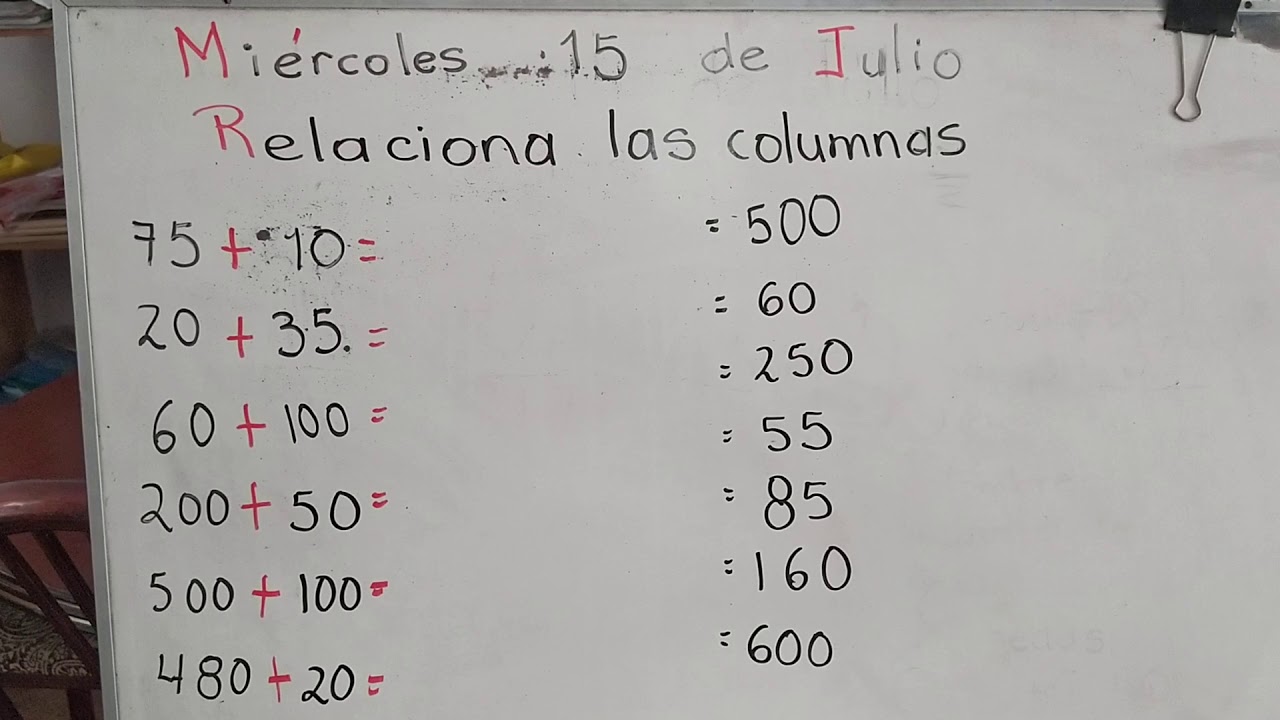 Miércoles 15 de Julio
Relaciona las columnas
75 + 10 =
20 + 35. =
60 + 100 =
200 + 50 =
500 + 100 =
480 + 20 =
= 500
= 60
= 250
= 55
= 85
= 160
= 600